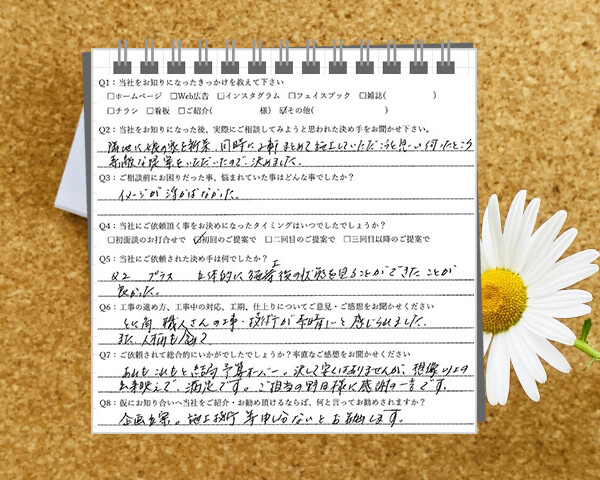 Q1：当社をお知りになったきっかけを教えて下さい
□ホームページ □Web広告 □インスタグラム □フェイスブック □雑誌( )
□チラシ □看板 □ご紹介( 様) ☑その他( )
Q2：当社をお知りになった後、実際にご相談してみようと思われた決め手をお聞かせ下さい。
隣地に娘の家を新築、同時に2軒まとめて施工していただこうと思い伺ったところ
素敵な提案をいただいたので決めました。
Q3：ご相談前にお困りだった事、悩まれていた事はどんな事でしたか？
イメージが浮かばなかった。
Q4：当社にご依頼頂く事をお決めになったタイミングはいつでしたでしょうか？
□初面談のお打合せで ☑初回のご提案で □二回目のご提案で □三回目以降のご提案で
Q5：当社にご依頼された決め手は何でしたか？
Q2 プラス 立体的に施工後の状態を見ることができたことが
良かった。
Q6：工事の進め方、工事中の対応、工期、仕上りについてご意見・ご感想をお聞かせください
とに角、職人さんの工事・技術が素晴しいと感じられました。
また、人柄も含めて
Q7：ご依頼されて総合的にいかがでしたでしょうか？率直なご感想をお聞かせください
あれもこれもと結局予算オーバー。決して安くはありませんが、想像以上の
出来映えで、満足です。ご担当の野田様に感謝の一言です。
Q8：仮にお知り合いへ当社をご紹介・お勧め頂けるならば、何と言ってお勧めされますか？
企画立案。施工技術 申し分ないとお勧めします。